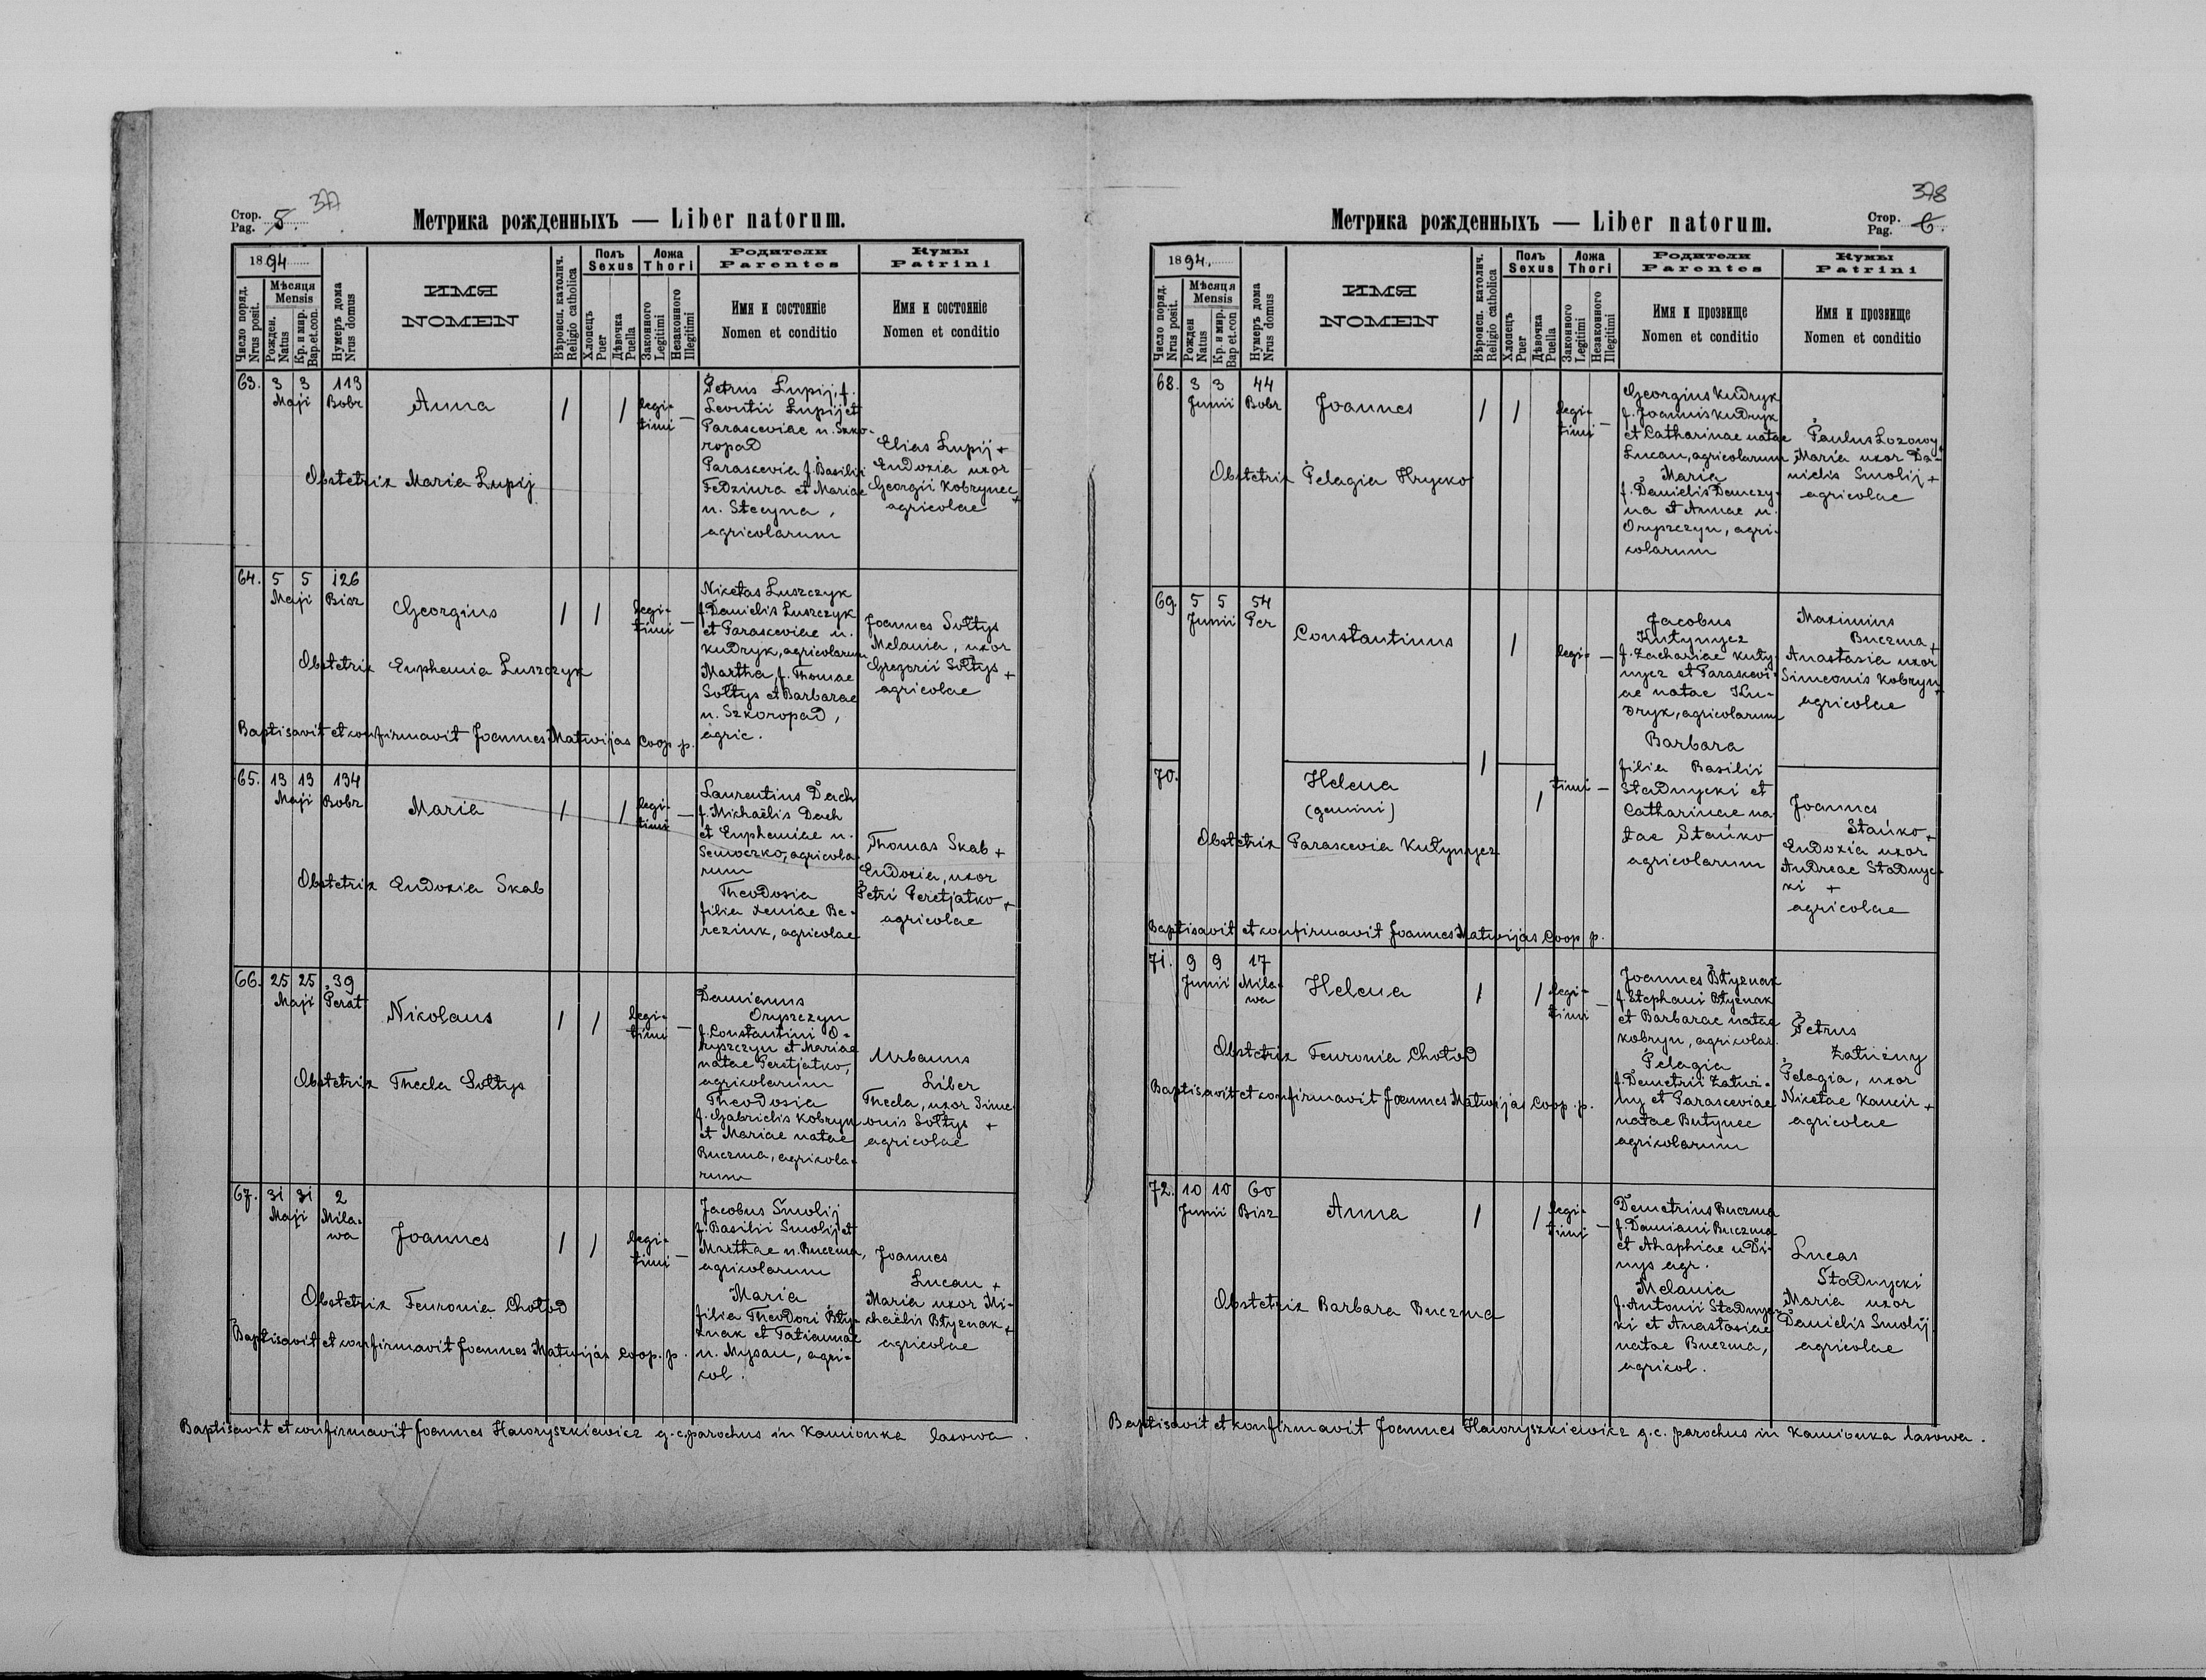 Стор.
Pag. 5.
377
Метрика рожденныхъ — Liber natorum.
1894
Число поряд.
Nrus posit.
Мѣсяця
Mensis
Рожден.
Natus
Кр. и мир.
Bap.et.con.
Нумеръ дома
Nrus domus
ИМЯ
NOMEN
Вѣроисп. католич.
Religio catholica
Полъ
Sexus
Хлопецъ
Puer
Дѣвочка
Puella
Ложа
Thori
Законного
Legitimi
Незаконного
Illegitimi
Родители
Parentes
Имя и состояніе
Nomen et conditio
Кумы
Patrini
Имя и состояніе
Nomen et conditio
63. 3 3 113
Maji Bobr
Anna
/ / legi-
timi —
Petrus Lupij, f.
Leontii Lupij et
Parasceviae n. Szko-
ropad
Paraskevia f. Basilii
Fedziura et Mariae
n. Stecyna,
agricolarum
Elias Lupij +
Eudoxia uxor
Georgii Kobrynec +
agricolae
Obstetrix Maria Lupij
64. 5 5 126
Maji Bisz
Georgius
/ / legi-
timi —
Niketas Luszczyk
f. Danielis Luszczyk
et Parasceviae n.
Kudryk, agricolarum
Martha, f. Thomae
Sołtys et Barbarae
n. Szkoropad,
agric.
Joannes Sołtys
Melania, uxor
Gregorii Sołtys +
agricolae
Obstetrix Euphemia Luszczyk
Baptisavit et confirmavit Joannes Matwijas Coop. p.
65. 13 13 134
Maji Bobr
Maria
/ / legi-
timi —
Laurentius Dach
f. Michaëlis Dach
et Euphemiae n.
Semoczko, agricola-
rum
Theodosia
filia Xeniae Be-
reziuk, agricolae
Thomas Skab +
Eudoxia, uxor
Petri Peretjatko +
agricolae
Obstetrix Eudoxia Skab
66. 25 25 39
Maji Perat
Nikolaus
/ / legi-
timi —
Damianus
Oryszczyn
f. Constantini O-
ryszczyn et Mariae
natae Peretjatko,
agricolarum
Theodosia
f. Gabrielis Kobryn
et Mariae natae
Buczma, agricola-
rum
Urbanus
Liber
Thecla, uxor Sime-
onis Sołtys +
agricolae
Obstetrix Thecla Sołtys
67. 31 31 2
Maji Mila-
wa
Joannes
/ / legi-
timi —
Jacobus Smolij
f. Basilii Smolij et
Marthae n. Buczma,
agricolarum
Maria
filia Theodori Błty-
znak et Tatiannae
n. Mysan, agri-
col.
Joannes
Lucan +
Maria uxor Mi-
chaëlis Błyznak +
agricolae
Obstetrix Feuronia Chołod
Baptisavit et confirmavit Joannes Matwijas Coop. p.
Baptisavit et confirmavit Joannes Haworyszkiewicz g.c. parochus in Kamionka lasowa.
378
Стор.
Pag. 6.
Метрика рожденныхъ — Liber natorum.
1894.
Число поряд.
Nrus posit.
Мѣсяця
Mensis
Рожден
Natus
Кр. и мир.
Bap et.con
Нумеръ дома
Nrus domus
ИМЯ
NOMEN
Вѣроисп. католич.
Religio catholica
Полъ
Sexus
Хлопецъ
Puer
Дѣвочка
Puella
Ложа
Thori
Законного
Legitimi
Незаконного
Illegitimi
Родители
Parentes
Имя и прозвище
Nomen et conditio
Кумы
Patrini
Имя и прозвище
Nomen et conditio
68. 3 3 44
Junii Bobr
Joannes
/ / legi-
timi —
Georgius Kudryk
f. Joannis Kudryk
et Catharinae natae
Lucan, agricolarum
Maria
f. Danielis Demczy-
na et Annae n.
Oryszczyn, agri-
colarum
Paulus Lozowy +
Maria uxor Da-
nielis Smolij +
agricolae
Obstetrix Pelagia Hrycko
69. 5 5 54
Junii Per
Constantinus
/ legi- —
Jacobus
Kutynycz
f. Zachariae Kuty-
nycz et Paraskevi-
ae natae Ku-
dryk, agricolarum
Barbara
filia Basilii
Stadnycki et
Catharinae na-
tae Stańko
agricolarum
Maximius
Buczma +
Anastasia uxor
Simeonis Kobryn +
agricolae
70.
Helena
(gemini)
/ / timi —
Joannes
Stańko +
Eudoxia uxor
Andreae Stadnyc-
ki +
agricolae
Obstetrix Parascevia Kutynycz
Baptisavit et confirmavit Joannes Matwijas Coop. p.
71. 9 9 17
Junii Mila-
wa
Helena
/ / legi-
timi —
Joannes Błyznak
f. Stephani Błyznak
et Barbarae natae
Kobryn, agricolar.
Pelagia
f. Demetrii Zatuż-
ny et Parasceviae
natae Butynec
agricolarum
Petrus
Zatużny
Pelagia, uxor
Niketae Kancir +
agricolae
Obstetrix Feuronia Chołod
Baptisavit et confirmavit Joannes Matwijas Coop. p.
72. 10 10 60
Junii Bisz
Anna
/ / legi-
timi —
Demetrius Buczma
f. Damiani Buczma
et Ahaphiae n Di-
nys agr.
Melania
f. Antonii Stadnyc-
ki et Anastasiae
natae Buczma,
agricol.
Lucas
Stadnycki
Maria uxor
Danielis Smolij
agricolae
Obstetrix Barbara Buczma
Baptisavit et confirmavit Joannes Haworyszkiewicz g.c. parochus in Kamionka lasowa.